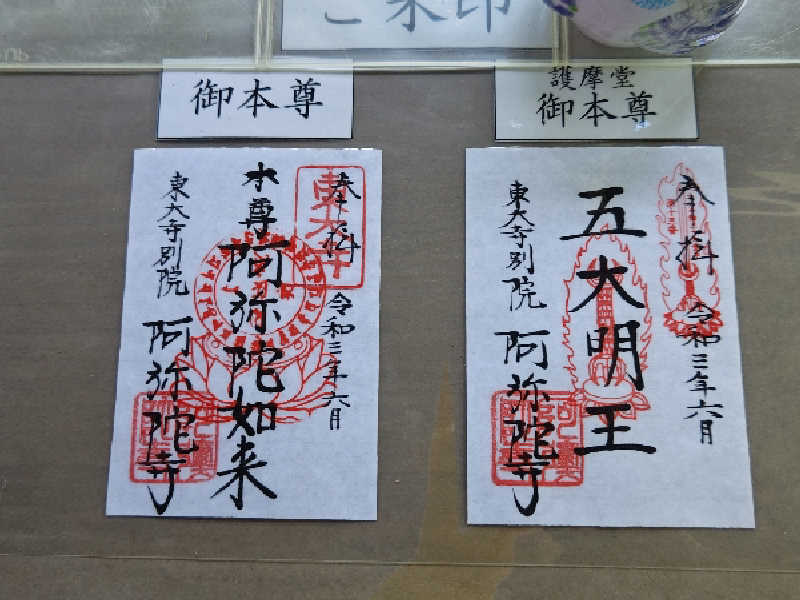 ご朱印
御本尊
奉拝
令和三年六月
東大寺
本尊
阿弥陀如来
東大寺別院
阿弥陀寺
護摩堂
御本尊
奉拝
令和三年六月
五大明王
東大寺別院
阿弥陀寺